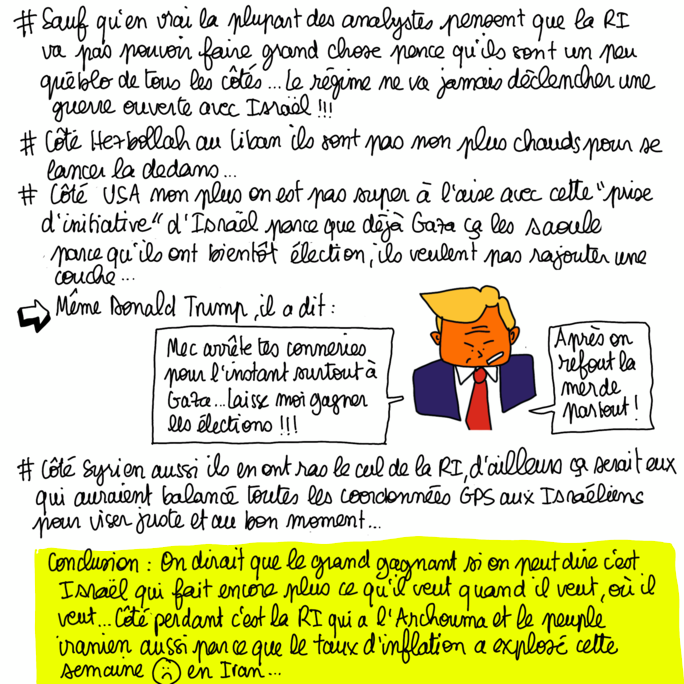 # Sauf qu'en vrai la plupart des analystes pensent que la RI
va pas pouvoir faire grand chose parce qu'ils sont un peu
québlo de tous les côtés... Le régime ne va jamais déclencher une
guerre ouverte avec Israël !!!
# Côté Hezbollah au Liban ils sont pas non plus chauds pour se
lancer la dedans...
# Côté USA non plus on est pas super à l'aise avec cette "prise
d'initiative" d'Israël parce que déjà Gaza ça les saoule
parce qu'ils ont bientôt élection, ils veulent pas rajouter une
couche...
Même Donald Trump, il a dit :
Mec arrête tes conneries
pour l'instant surtout à
Gaza... Laisse moi gagner
les élections !!!
Après on
refout la
merde
partout !
# Côté Syrien aussi ils en ont ras le cul de la RI, d'ailleurs ça serait eux
qui auraient balancé toutes les coordonnées GPS aux Israéliens
pour viser juste et au bon moment...
Conclusion : On dirait que le grand gagnant si on peut dire c'est
Israël qui fait encore plus ce qu'il veut quand il veut, où il
veut... Côté perdant c'est la RI qui a l'Archouma et le peuple
iranien aussi parce que le taux d'inflation a explosé cette
semaine en Iran...